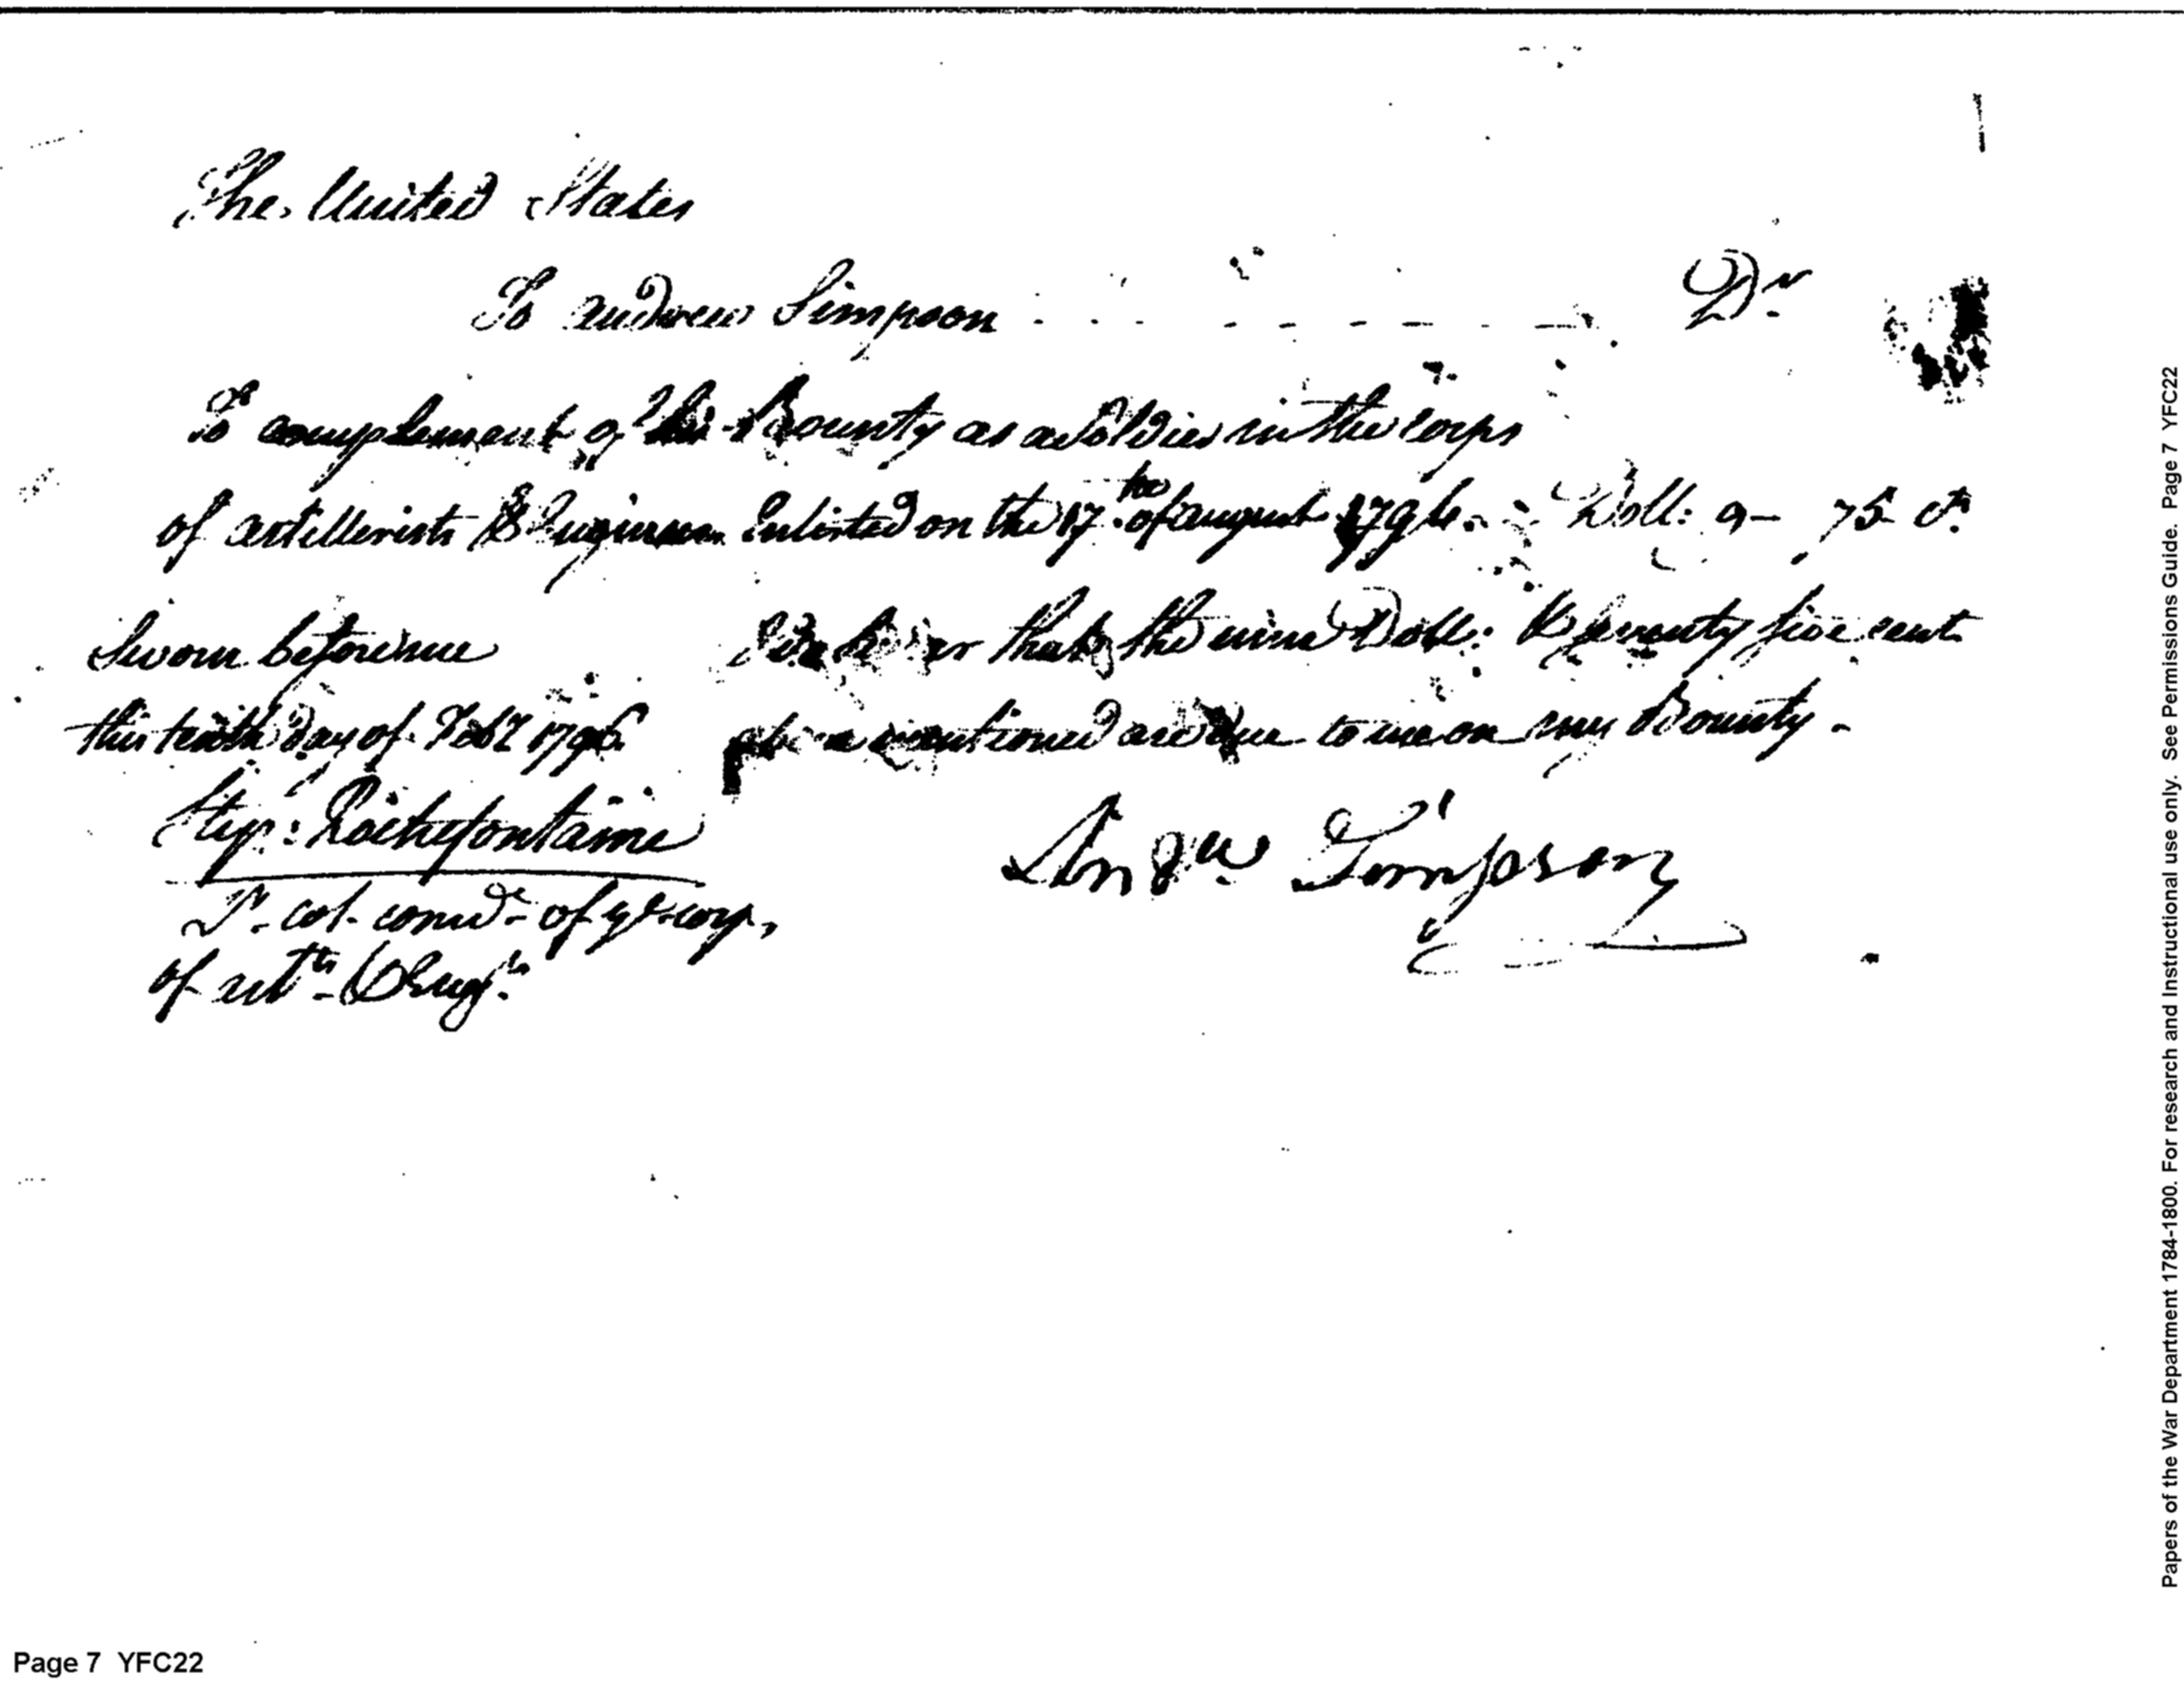 The United States
To andrew Simpson - - - - - - - - - - Dr.
To complement of his Bounty as a Soldier in the Corps
of artillerists & Engineers Enlisted on the 17.th of august 1796. - Doll: 9 - 75 ct.
Sworn before me
this tenth Day of Feb.y 1796.
Step: Rochefontaine
Lt. col. comd.t of ye corps
of art.ts & Eng.rs
that the nine Doll: & Seventy five cent
above mentioned are due to me on my Bounty -
Andw Simpson
Page 7 YFC22
Papers of the War Department 1784-1800. For research and Instructional use only. See Permissions Guide. Page 7 YFC22